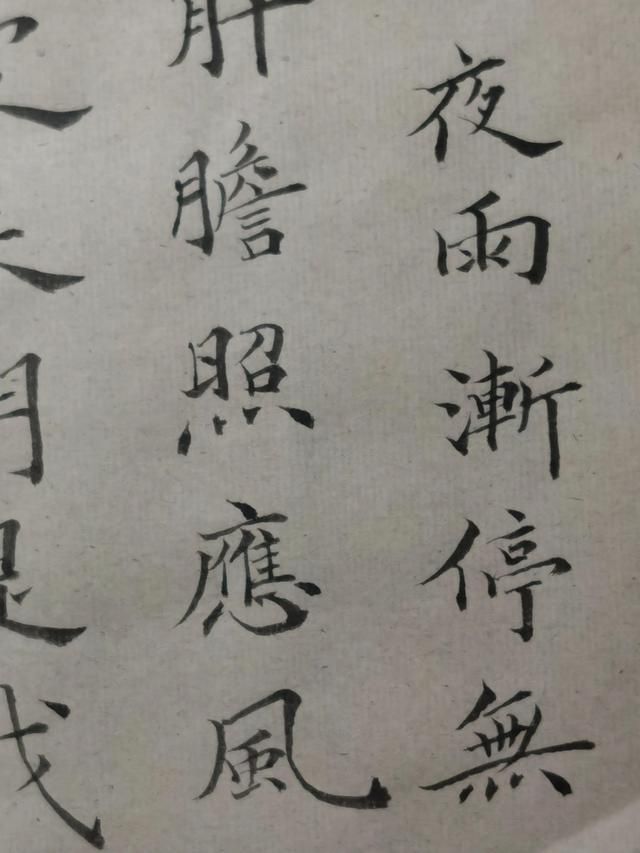 夜雨漸停無
肝膽照應風
月是